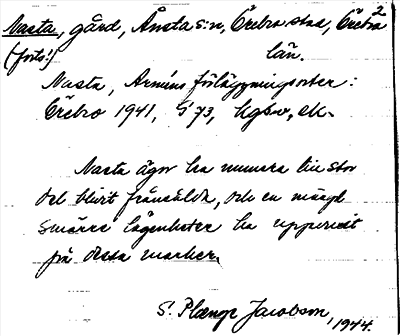 2
Nasta, gård, Ånsta s:n, Örebro stad, Örebro
(forts!) län.
Nasta, Arméns förläggningsorter:
Örebro 1941, S 73, hgbv, ek.
Nasta ägor ha numera till stor
del blivit frånsålda, och en mängd
smärre lägenheter ha uppstått
på dessa marker.
S. Plænge Jacobson, 1944.